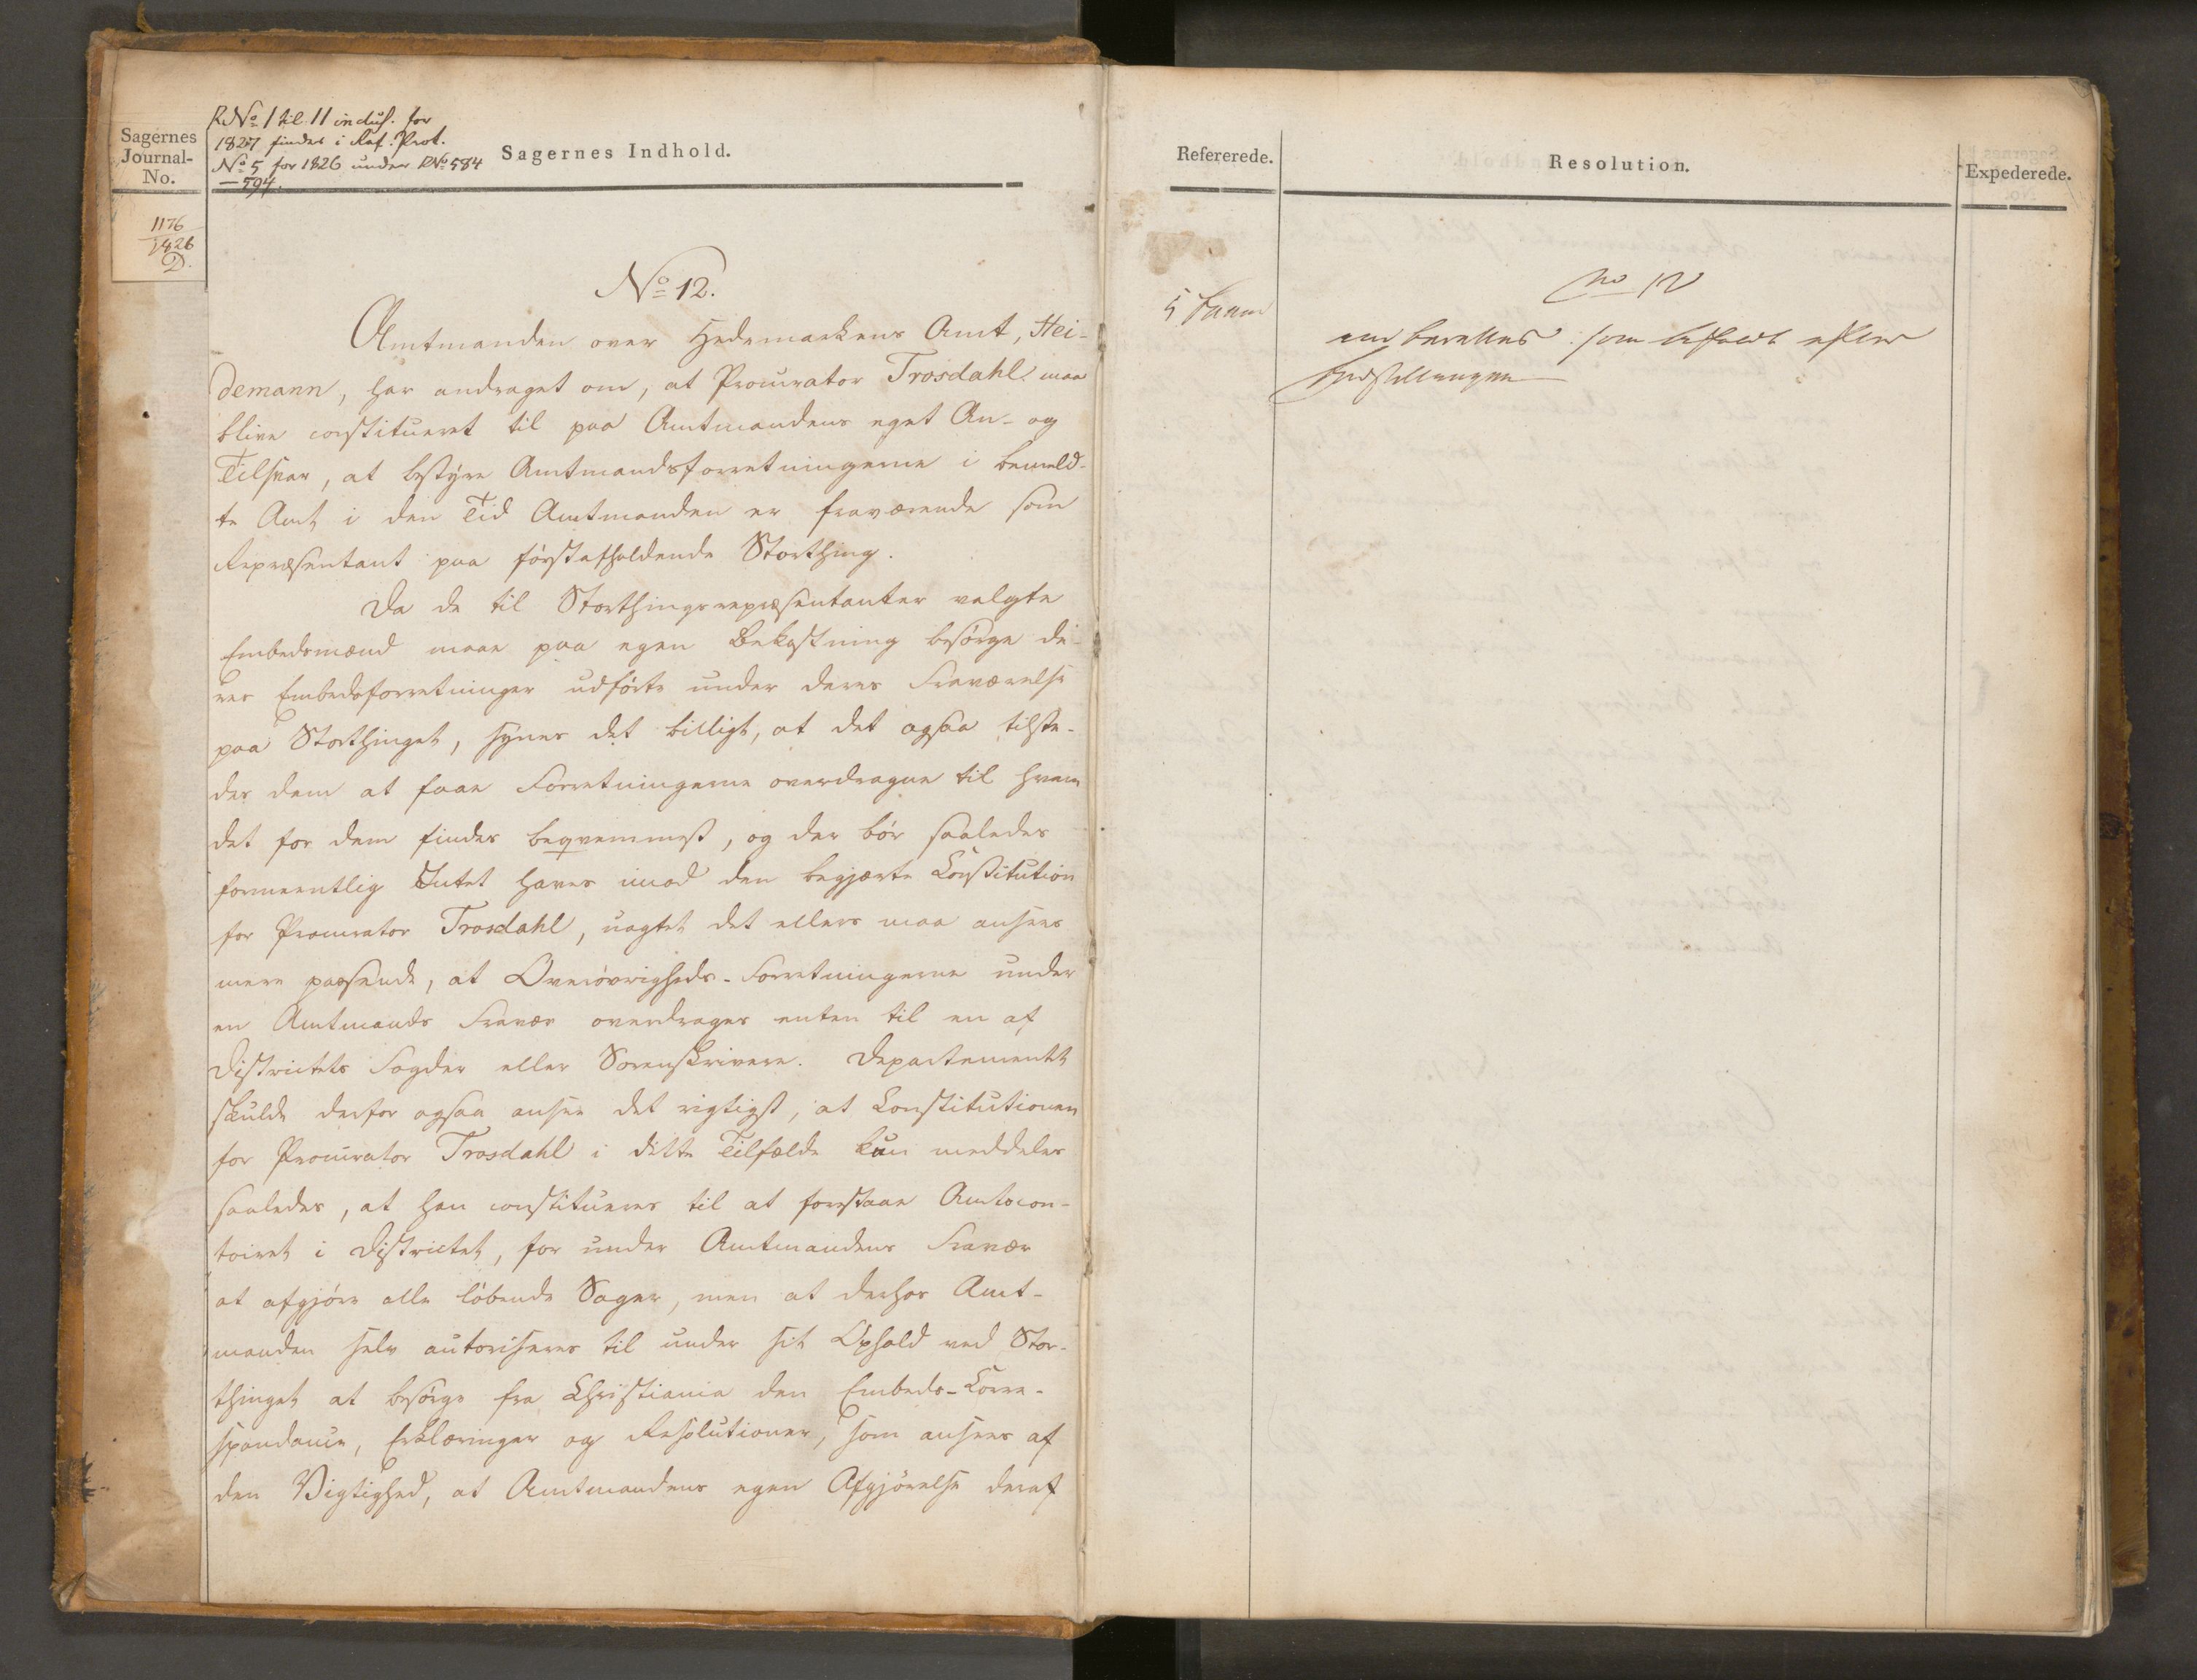 RNo 1 til 11 inclus. for
1827 findes i Ref. Prot.
No 5 for 1826 under RNo 584
— 594.
Sagernes
Journal-
No.
Sagernes Indhold.
1176
1826
D.
No 12.
Amtmanden over Hedemarkens Amt, Hei-
demann, har andraget om, at Procurator Trosdahl maa
blive constitueret til paa Amtmandens eget An- og
Tilsvar, at bestyre Amtmandsforretningerne i bemeld-
te Amt i den Tid Amtmanden er fraværende som
Repræsentant paa förstafholdende Storthing.
Da de til Storthingsrepræsentanter valgte
Embedsmænd maae paa egen Bekostning besörge de-
res Embedsforretninger udförte under deres Fraværelse
paa Storthinget, synes det billigt, at det ogsaa tilste-
des dem at faae Forretningerne overdragne til hvem
det for dem findes beqvemmest, og der bör saaledes
formeentlig Intet haves imod den begjærte Constitution
for Procurator Trosdahl, uagtet det ellers maa ansees
mere passende, at Överövrigheds-Forretningerne under
en Amtmands Fravær overdrages enten til en af
Districtets Fogder eller Sorenskrivere. Departementet
skulde derfor ogsaa ansee det rigtigst, at Constitutionen
for Procurator Trosdahl i dette Tilfælde kun meddeles
saaledes, at han constitueres til at forestaae Amtscon-
toiret i Districtet, for under Amtmandens Fravær
at afgjöre alle löbende Sager, men at derhos Amt-
manden selv autoriseres til under sit Ophold ved Stor-
thinget at besörge fra Christiania den Embeds-Corre-
spondance, Erklæringer og Resolutioner, som ansees af
den Vigtighed, at Amtmandens egen Afgjörelse deraf
Refererede.
Resolution.
Expederede.
5
No 12
som
efter
Indstillingen